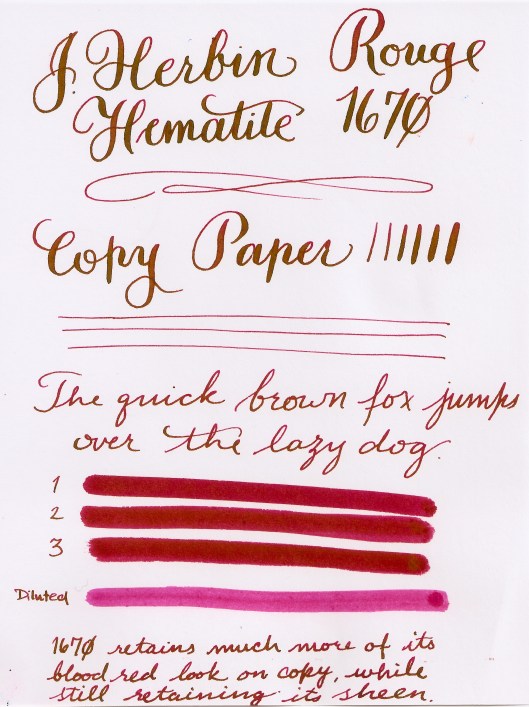 J. Herbin Rouge
Hematite 1670
Copy Paper
The quick brown fox jumps
over the lazy dog.
1
2
3
Diluted
1670 retains much more of its
blood red look on copy, while
still retaining its sheen.